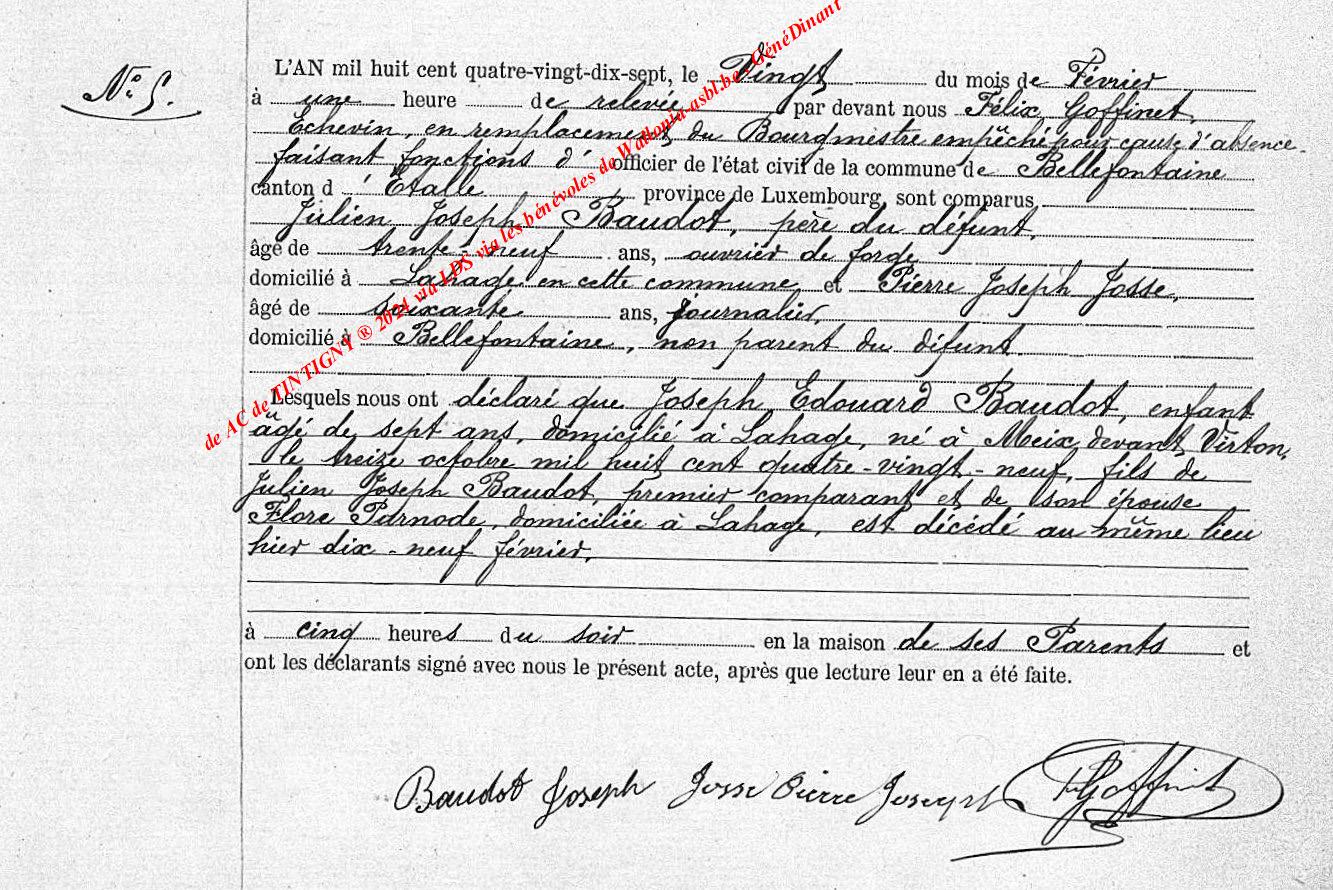 N° 5.
L'AN mil huit cent quatre-vingt-dix-sept, le Vingt du mois de Février
à une heure de relevée par devant nous Félix Goffinet,
Echevin, en remplacement du Bourgmestre empêché pour cause d'absence
faisant fonctions d'officier de l'état civil de la commune de Bellefontaine
canton d'Etalle province de Luxembourg, sont comparus
Julien Joseph Baudot, père du défunt,
âgé de trente-neuf ans, ouvrier de forge
domicilié à Lahage en cette commune et Pierre Joseph Josse,
âgé de soixante ans, journalier,
domicilié à Bellefontaine, non parent du défunt
Lesquels nous ont déclaré que Joseph Edouard Baudot, enfant
âgé de sept ans, domicilié à Lahage, né à Meix devant Virton,
le treize octobre mil huit cent quatre-vingt-neuf, fils de
Julien Joseph Baudot, premier comparant et de son épouse
Flore domiciliée à Lahage, est décédé au même lieu
hier dix-neuf février,
à cinq heures du soir en la maison de ses Parents et
ont les déclarants signé avec nous le présent acte, après que lecture leur en a été faite.
Baudot Joseph Josse Pierre Joseph F Goffinet
de AC de TINTIGNY ® 2024 via LDS via les bénévoles de Wallonia-asbl.be GénéDinant